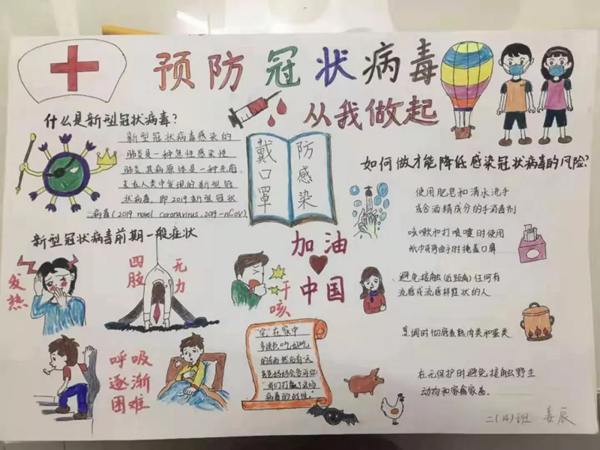 预防冠状病毒
从我做起
什么是新型冠状病毒?
新型冠状病毒感染的
肺炎是一种急性感染性
肺炎,其病原体是一种先前
未在人类中发现的新型冠
状病毒,即2019新型冠状
病毒(2019 novel coronavirus, 2019-nCoV)
戴口罩
防感染
如何做才能降低感染冠状病毒的风险?
使用肥皂和清水洗手
或含酒精成分的手消毒剂
咳嗽和打喷嚏时使用
纸巾或弯曲手肘掩盖口鼻
避免接触(近距离)任何有
流感或流感样症状的人
烹调时彻底熟肉类和蛋类
在无保护时避免接触野生
动物和家禽家畜。
新型冠状病毒前期一般症状
发热
四肢
无力
干咳
呼吸
逐渐
困难
加油
中国
宅在家中
我们打赢了这场
病毒的战役。
二(14)班 姜辰